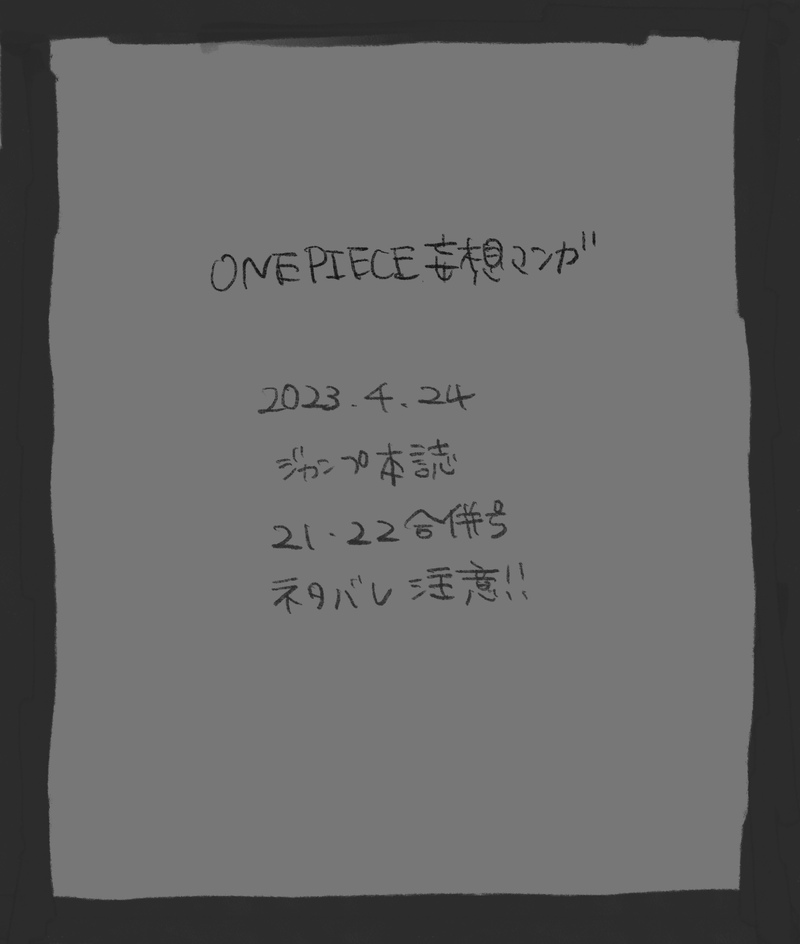 ONE PIECE 妄想マンガ
2023.4.24
ジャンプ本誌
21・22合併号
ネタバレ注意!!